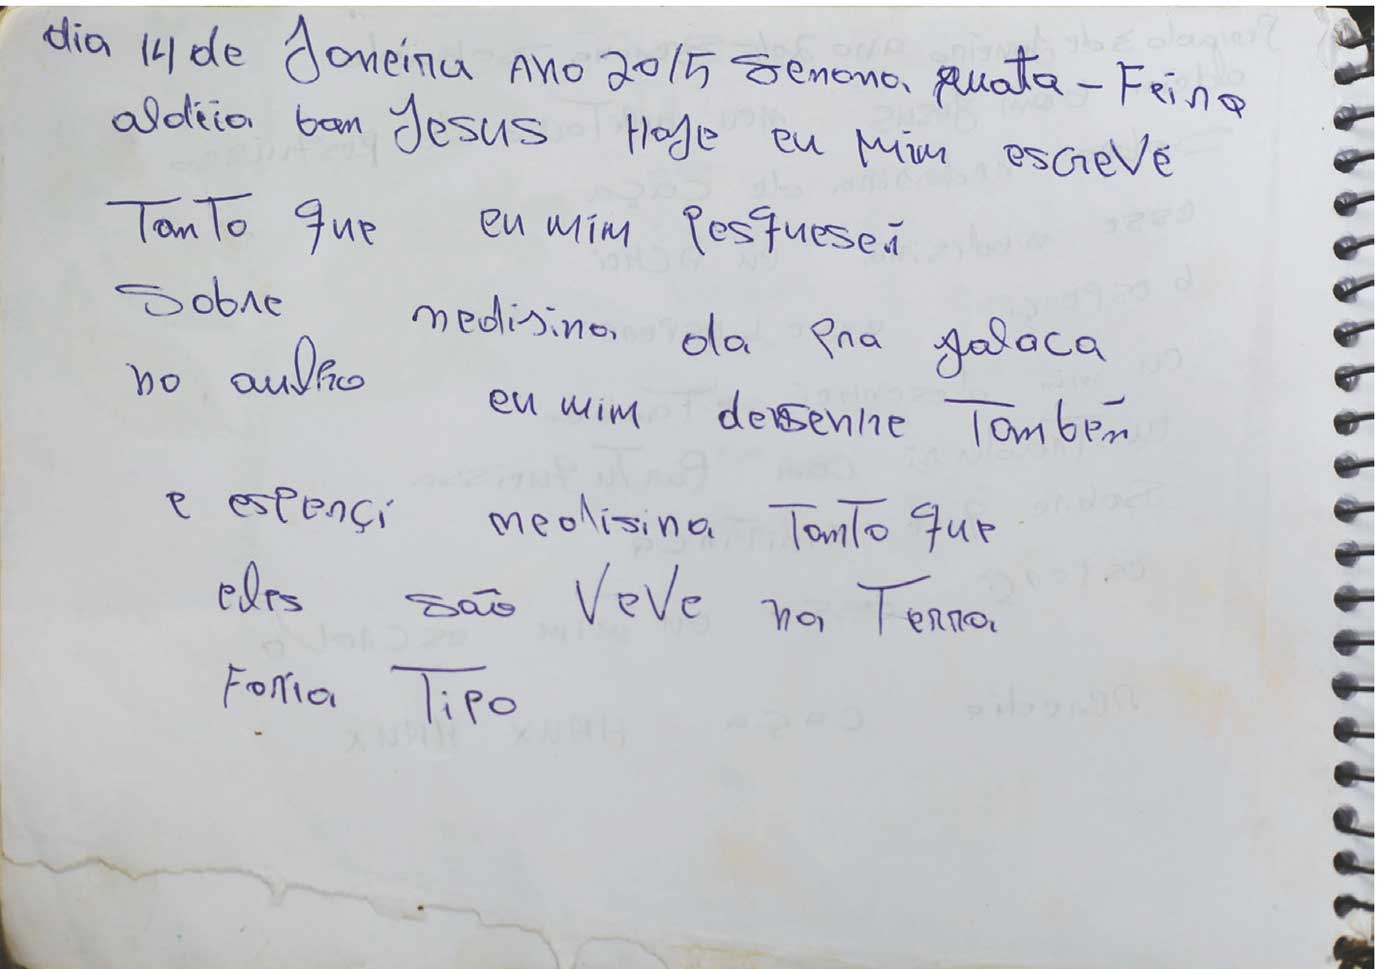 dia 14 de Joneira ano 2015 Semana quata-Feira
aldeia bom Jesus Hoje eu mim escrevé
Tanto que eu mim Pesquesei
Sobre medisina da Pra jalaca
no aulho eu mim desenhe Também
e espençi medisina Tanto que
eles são VeVe na Terra
Foria Tipo